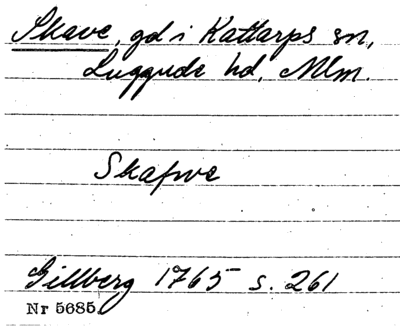 Skave, gd i Kattarps sn,
Luggude hd, Mlm.
Skafwe
Gillberg 1765 s. 261
Nr 5685